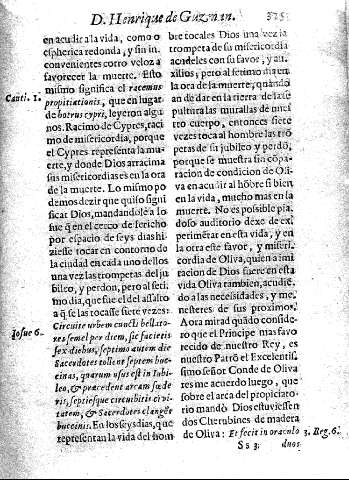 D. Henrique de Guzman.
en acudir a la vida, como o
espherica redonda, y sin in-
convenientes corro veloz a
favorecer la muerte. Esto
mismo significa el racemus
Canti. 1. propitiationis, que en lugar
de botrus cypri, leyeron algu-
nos. Racimo de Cypres, raci
mo de misericordia, porque
el Cypres representa la mu-
erte, y donde Dios arracima
sus misericordias es en la ora
de la muerte. Lo mismo po
demos dezir que quiso signi
ficar Dios, mandandole a Io
sue q̃ en el cerco de Ierichò
por espacio de seys dias hi-
ziesse tocar en contorno de
la ciudad en cada uno dellos
una vez las trompetas del ju
bileo, y perdon, pero al seti-
mo dia, que fue el del assalto
a q̃ se las tocasse siete vezes:
Iosue 6. Circuite urbem cuncti bellato-
res semel per diem, sic facietis
sex diebus, septimo autem die
Sacerdotes tollent septem buc-
cinas, quarum usus est in Iubi-
leo, & præcedent arcam fœde-
ris, septiesque circuibitis civi-
tatem, & Sacerdotes clangēt
buccinis. En los seys dias, que
representan la vida del hom
bre tocales Dios una vez la
trompeta de su misericordia
acudeles con su favor, y au-
xilios; pero al setimo dia en
la ora de la muerte, quando
an de dar en la tierra de la se
pultura las murallas de nues
tro cuerpo, entonces siete
vezes toca al hombre las trõ
petas de su jubileo y perdõ,
porque se muestra sin cõpa-
racion de condicion de Oli-
va en acudir al hõbre si bien
en la vida, mucho mas en la
muerte. No es possible pia-
doso auditorio dexe de ex-
perimẽtar en esta vida, y en
la otra este favor, y miseri-
cordia de Oliva, quien a imi
tacion de Dios fuere en esta
vida Oliva tambien, acudiẽ-
do a las necesidades, y me-
nesteres de sus proximos.
Aora mirad quãdo conside-
ro que el Principe mas favo
recido de nuestro Rey, es
nuestro Patrõ el Excelentis-
simo señor Conde de Oliva
res me acuerdo luego, que
sobre el arca del propiciato-
rio mandò Dios estuviessen
dos Cherubines de madera
de Oliva: Et fecit in oraculo 3. Reg. 6.
Ss 3. duos